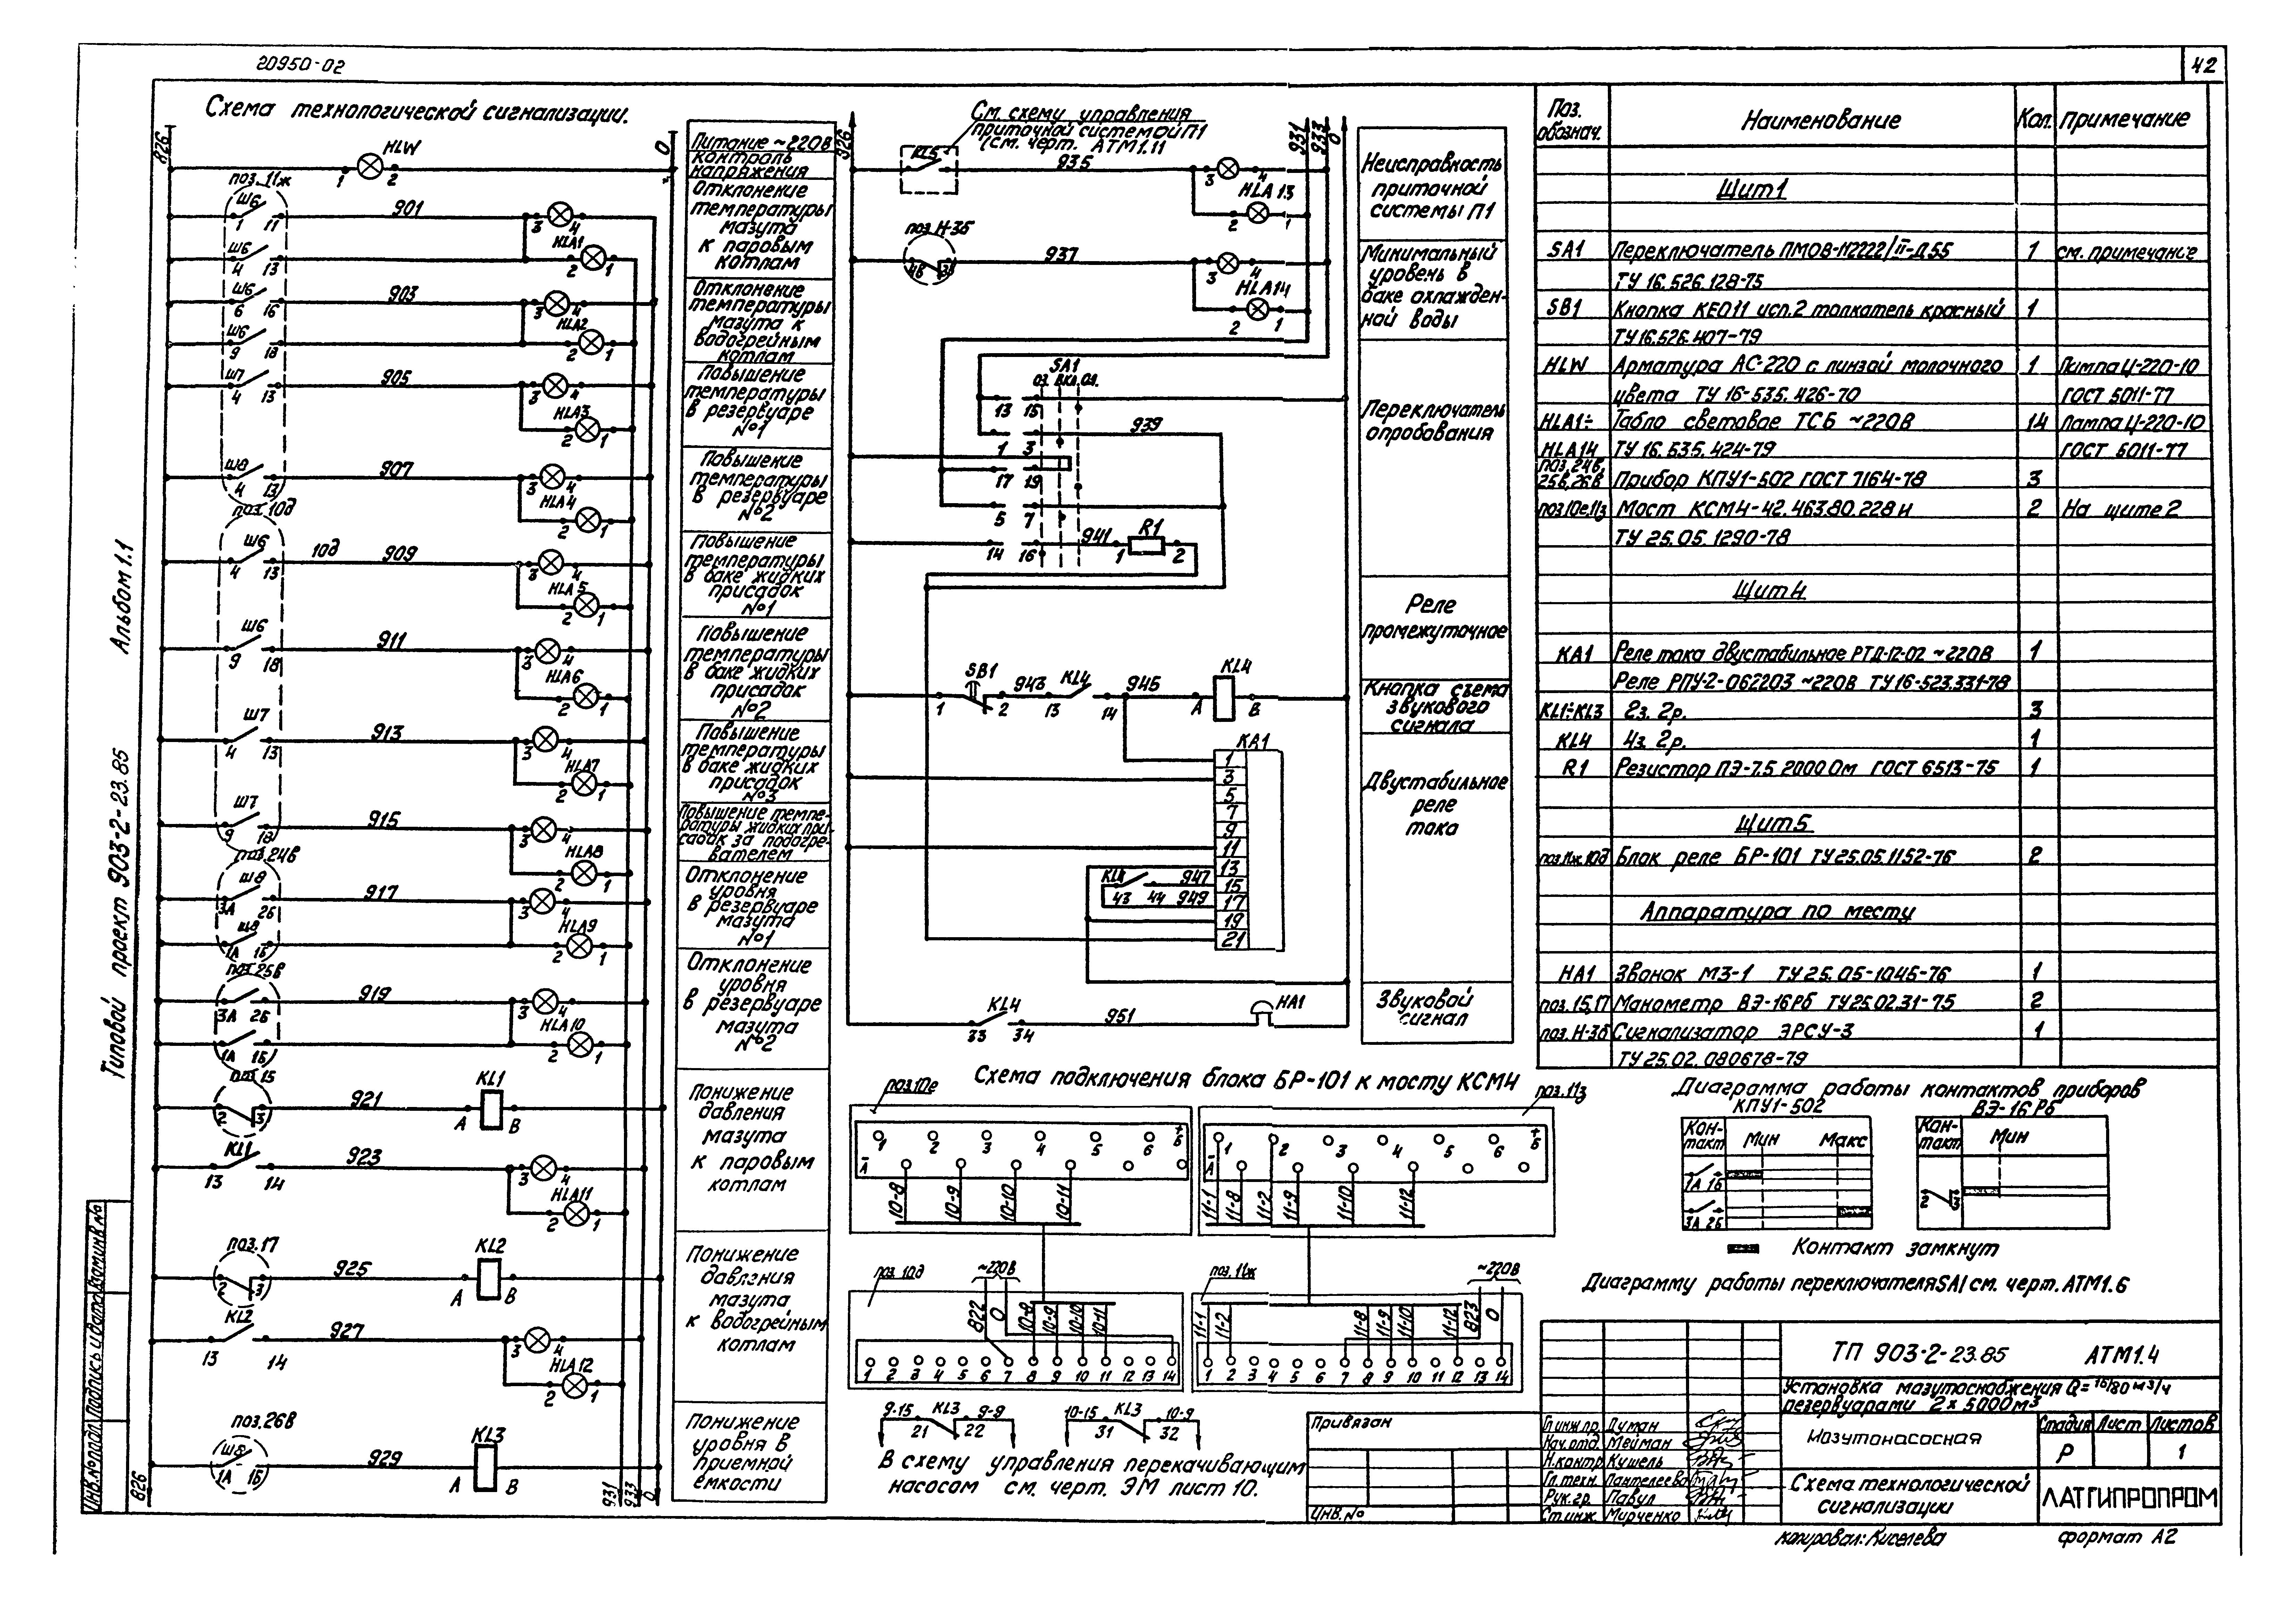 20950-02
42
Схема технологической сигнализации.
826
0
HLW
1 2
поз. 11ж
Ш6
1 11
901
3 4
HLA1
Ш6
4 13
2 1
Ш6
6 16
903
3 4
HLA2
Ш6
9 18
2 1
Ш7
4 13
905
3 4
HLA3
2 1
Ш8
4 13
907
3 4
HLA4
2 1
поз. 10д
Ш6
4 13
10д
909
3 4
HLA5
2 1
Ш6
9 18
911
3 4
HLA6
2 1
Ш7
4 13
913
3 4
HLA7
2 1
Ш7
9 18
915
3 4
HLA8
2 1
поз. 24в
Ш8
3А 2Б
917
3 4
HLA9
1А 1Б
2 1
поз. 25в
3А 2Б
919
3 4
HLA10
1А 1Б
2 1
поз. 15
2 3
921
KL1
A B
KL1
13 14
923
3 4
HLA11
2 1
поз. 17
2 3
925
KL2
A B
KL2
13 14
927
3 4
HLA12
2 1
поз. 26в
Ш8
1А 1Б
929
KL3
A B
826
931
933
0
Питание ~220В
Контроль
напряжения
Отклонение
температуры
мазута
к паровым
котлам
Отклонение
температуры
мазута к
водогрейным
котлам
Повышение
температуры
в резервуаре
№1
Повышение
температуры
в резервуаре
№2
Повышение
температуры
в баке жидких
присадок
№1
Повышение
температуры
в баке жидких
присадок
№2
Повышение
температуры
в баке жидких
присадок
№3
Повышение темпе-
ратуры жидких при-
садок за подогре-
вателем
Отклонение
уровня
в резервуаре
мазута
№1
Отклонение
уровня
в резервуаре
мазута
№2
Понижение
давления
мазута
к паровым
котлам
Понижение
давления
мазута
к водогрейным
котлам
Понижение
уровня в
приемной
емкости
См. схему управления
приточной системой П1
(см. черт. АТМ1.11
826
931
933
0
KL5
935
3 4
HLA13
2 1
поз. Н-3б
4В 3В
937
3 4
HLA14
2 1
SA1
ОЗ. ВКЛ. ОЛ.
13 15
1 3
939
17 19
5 7
14 16
941
R1
1 2
SB1
1 2
943
KL4
13 14
945
KL4
A B
KA1
1
3
5
7
9
11
13
15
17
19
21
KL4
43 44
947
949
KL4
33 34
951
HA1
Неисправность
приточной
системы П1
Минимальный
уровень в
баке охлажден-
ной воды
Переключатель
опробования
Реле
промежуточное
Кнопка съема
звукового
сигнала
Двустабильное
реле
тока
Звуковой
сигнал
Схема подключения блока БР-101 к мосту КСМ4
поз. 10е
1 2 3 4 5 6 Б
А
10-8 10-9 10-10 10-11
поз. 11з
1 2 3 4 5 6 Б
А
11-1 11-8 11-2 11-9 11-10 11-12
поз. 10д
~220В
822 0 10-8 10-9 10-10 10-11
1 2 3 4 5 6 7 8 9 10 11 12 13 14
поз. 11ж
~220В
11-1 11-2 11-8 11-9 11-10 11-12 823 0
1 2 3 4 5 6 7 8 9 10 11 12 13 14
9-15 KL3 9-9
21 22
10-15 KL3 10-9
31 32
В схему управления перекачивающим
насосом см. черт. ЭМ лист 10.
Поз. обознач. Наименование Кол. Примечание
Щит1
SA1 Переключатель ПМОВ-112222/II-Д55 1 см. примечание
ТУ 16.526.128-75
SB1 Кнопка КЕ011 исп.2 толкатель красный 1
ТУ 16.526.407-79
HLW Арматура АС-220 с линзой молочного 1 Лампа Ц-220-10
цвета ТУ 16-535.426-70 ГОСТ 5011-77
HLA1÷ Табло световое ТСБ ~220В 14 Лампа Ц-220-10
HLA14 ТУ 16.535.424-79 ГОСТ 5011-77
поз. 24в,
25в,26в Прибор КПУ1-502 ГОСТ 7164-78 3
поз.10е,11з Мост КСМ4-42.463.80.228И 2 На щите 2
ТУ 25.05.1290-78
Щит4
KA1 Реле тока двустабильное РТД-12-02 ~220В 1
Реле РПУ-2-062203 ~220В ТУ 16-523.331-78
KL1÷KL3 2з. 2р. 3
KL4 4з. 2р. 1
R1 Резистор ПЭ-7.5 2000 Ом ГОСТ 6513-75 1
Щит5
поз.11ж,10д Блок реле БР-101 ТУ 25.05.1152-76 2
Аппаратура по месту
HA1 Звонок МЗ-1 ТУ 25.05-1046-76 1
поз. 15,17 Манометр ВЭ-16Рб ТУ 25.02.31-75 2
поз. Н-3б Сигнализатор ЭРСУ-3 1
ТУ 25.02.080678-79
Диаграмма работы контактов приборов
КПУ1-502
ВЭ-16Рб
Кон-
такт Мин Макс
1А 1Б
3А 2Б
Кон-
такт Мин
2 3
Контакт замкнут
Диаграмму работы переключателя SA1 см. черт. АТМ1.6
Привязан
Инв. №
ТП 903-2-23.85 АТМ1.4
Установка мазутоснабжения Q=16/80 м³/ч
резервуарами 2×5000м³
Гл.инж.пр. Думан
Нач.отд. Мейман
Н.контр. Кушель
Гл.техн. Пантелеева
Рук.гр. Павул
Ст.инж. Мирченко
Мазутонасосная
Стадия Лист Листов
Р 1
Схема технологической
сигнализации
ЛАТГИПРОПРОМ
копировал: Киселева
формат А2
Типовой проект 903-2-23.85 Альбом 1.1
Инв.№подл. Подпись и дата Взам.инв.№